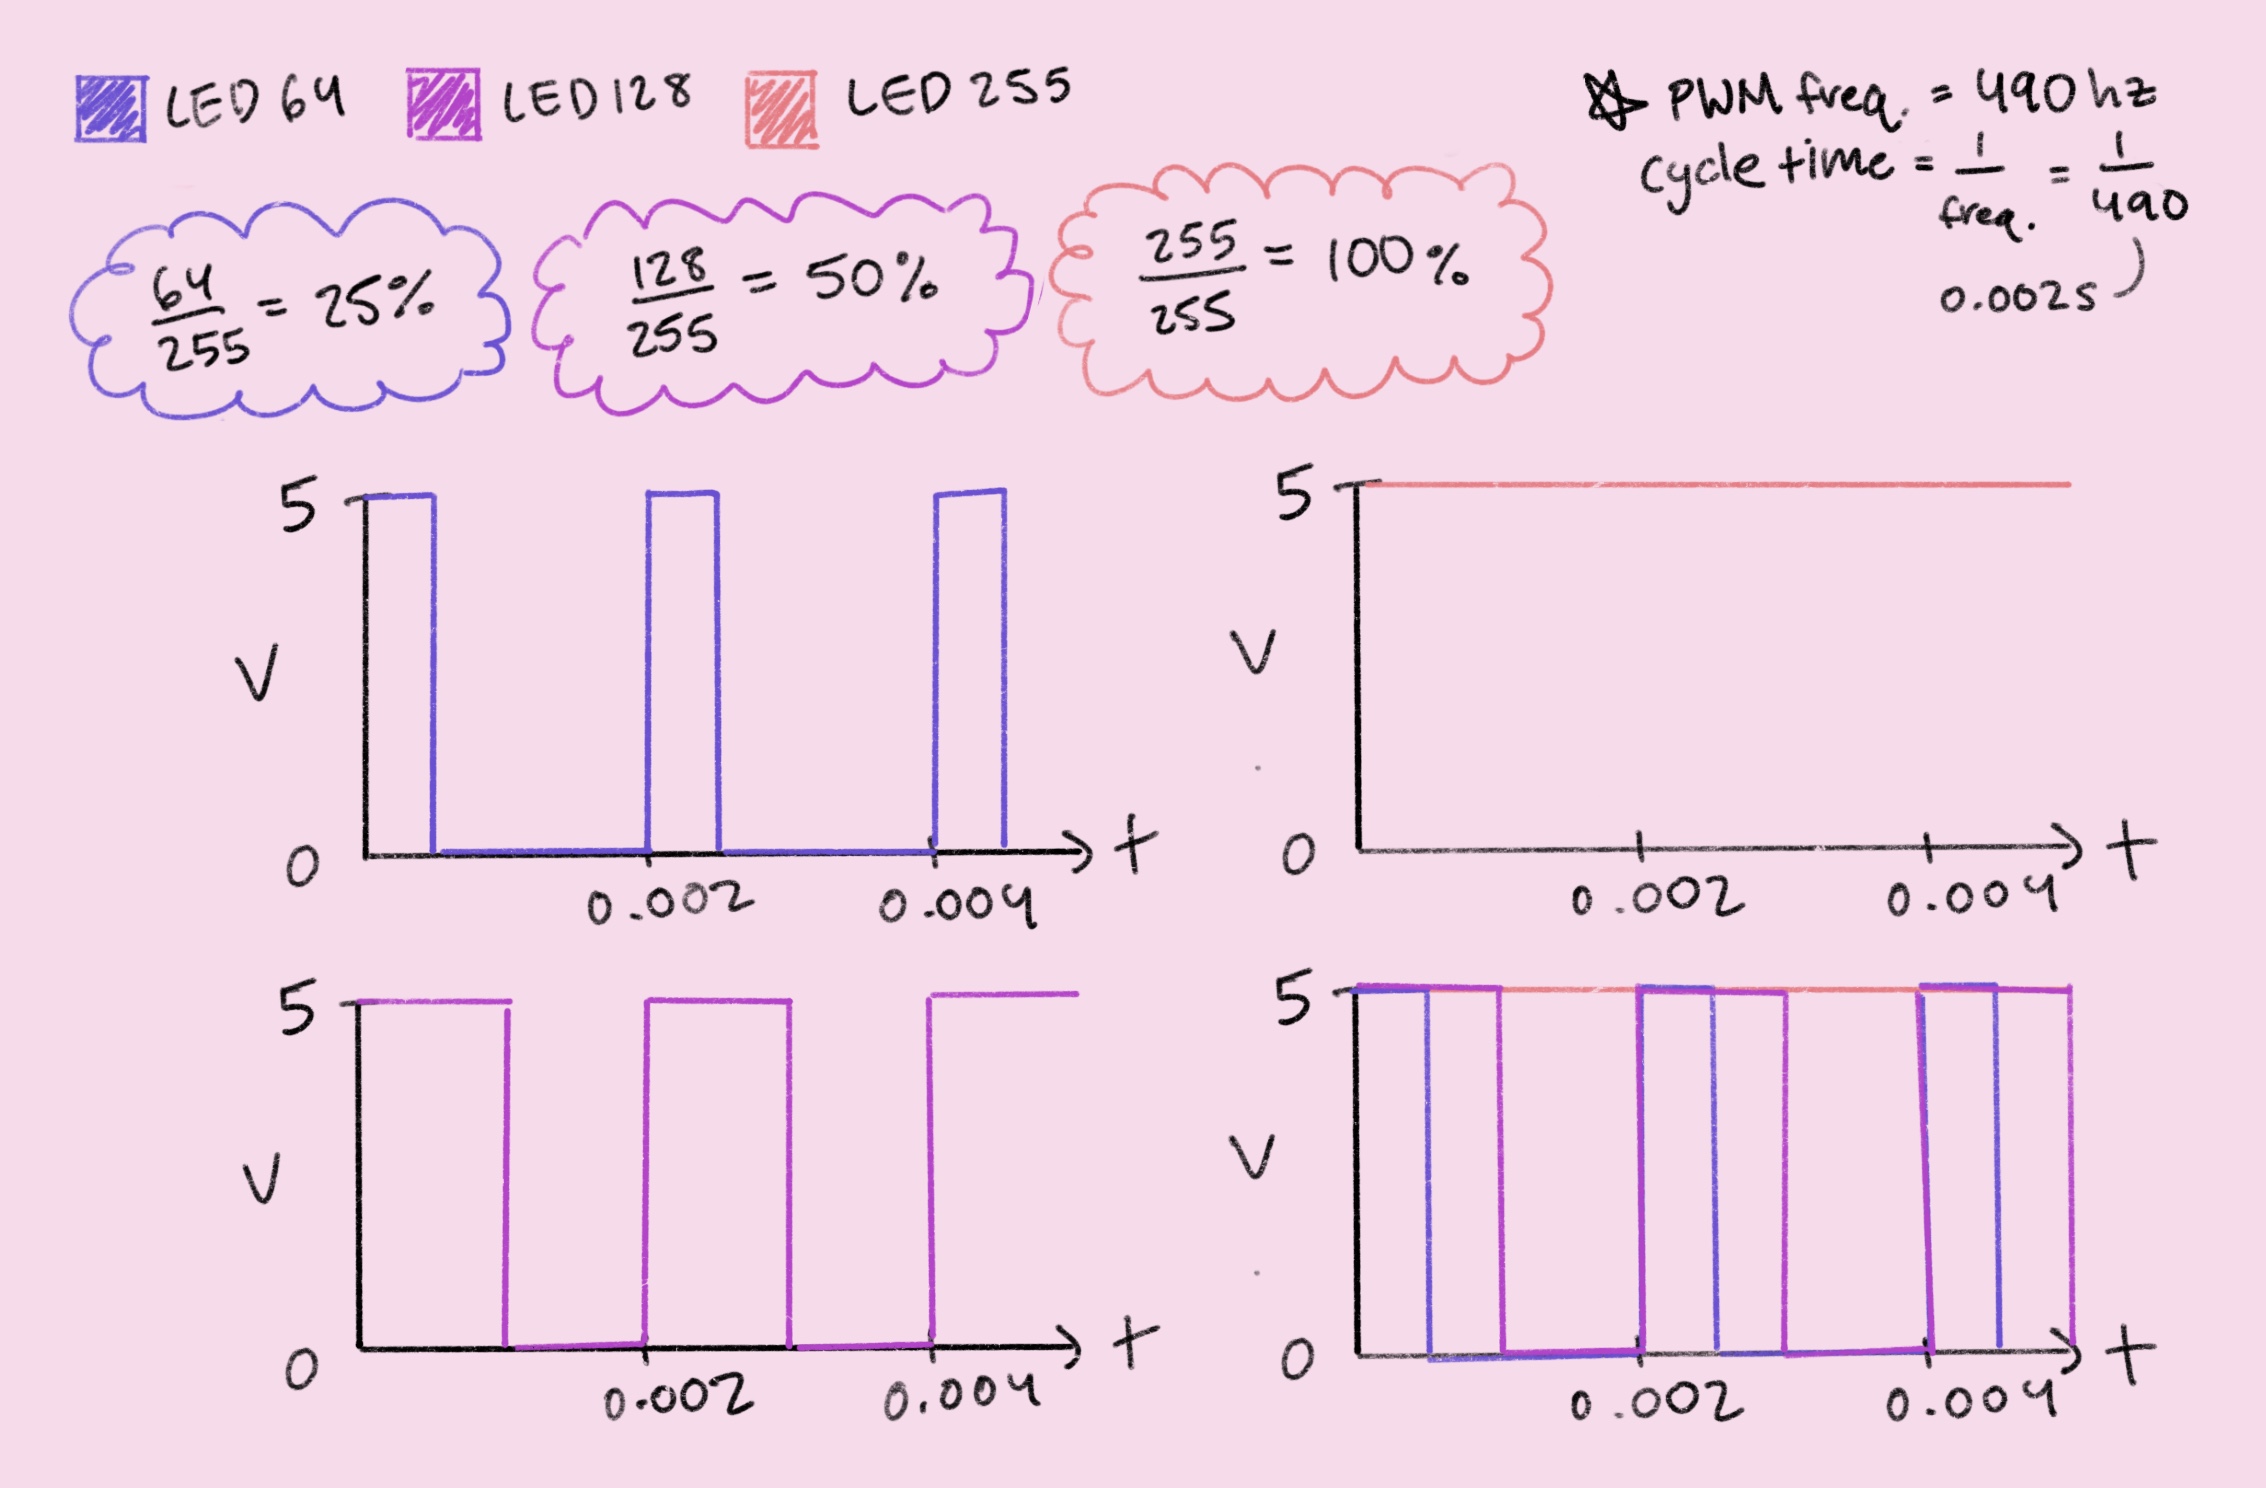 LED 64
LED 128
LED 255
☆ PWM freq. = 490 hz
cycle time = 1/freq. = 1/490
0.002s
64/255 = 25%
128/255 = 50%
255/255 = 100%
5
V
0
0.002 0.004
t
5
V
0
0.002 0.004
t
5
V
0
0.002 0.004
t
5
V
0
0.002 0.004
t